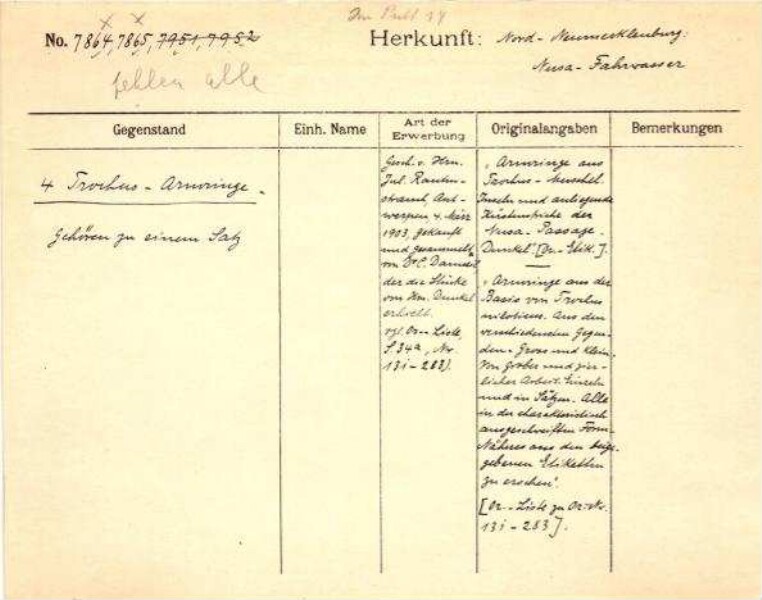 Im Pult 34
No. 7864, 7865, 7951, 7952
Herkunft: Nord-Neumecklenburg:
Nusa-Fahrwasser
fehlen alle
Gegenstand
Einh. Name
Art der
Erwerbung
Originalangaben
Bemerkungen
4 Trochus-Armringe.
Gehören zu einem Satz
Gesch. v. Hrn.
Jul. Rauten-
strauch, Ant-
werpen, 4. März
1903, gekauft
und gesammelt
von Dr C.
der die Stücke
von Hrn. Dunkel
erhielt.
vgl. Or-Liste,
S. 34a, Nr.
131-283).
„Armringe aus
Trochus-Muschel.
Inseln und anliegende
Küstenstriche der
Nusa-Passage.
Dunkel". [Or-Etik.].
„Armringe aus der
Basis von Trochus
niloticus. Aus den
verschiedensten Gegen-
den. Gross und Klein.
Von grober und zier-
licher Arbeit. Einzeln
und in Sätzen. Alle
in der charakteristisch
ausgeschweiften Form.
Näheres aus den beige-
gebenen Etiketten
zu ersehen".
[Or-Liste zu Or-Nr.
131-283].